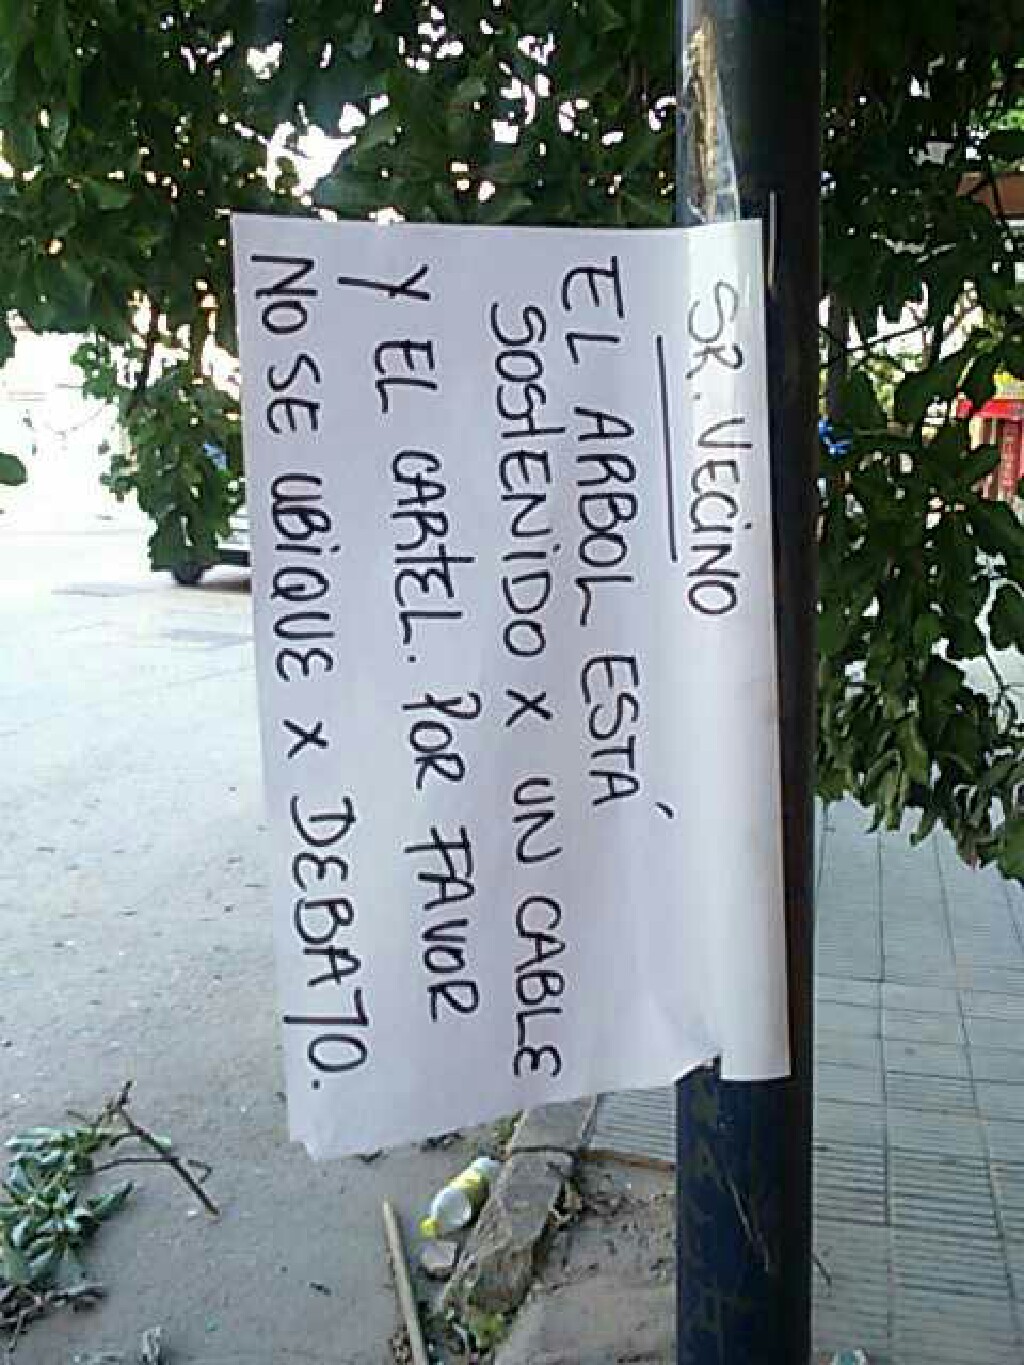 SR. VECINO
EL ARBOL ESTÁ
SOSTENIDO X UN CABLE
Y EL CARTEL. POR FAVOR
NO SE UBIQUE X DEBAJO.